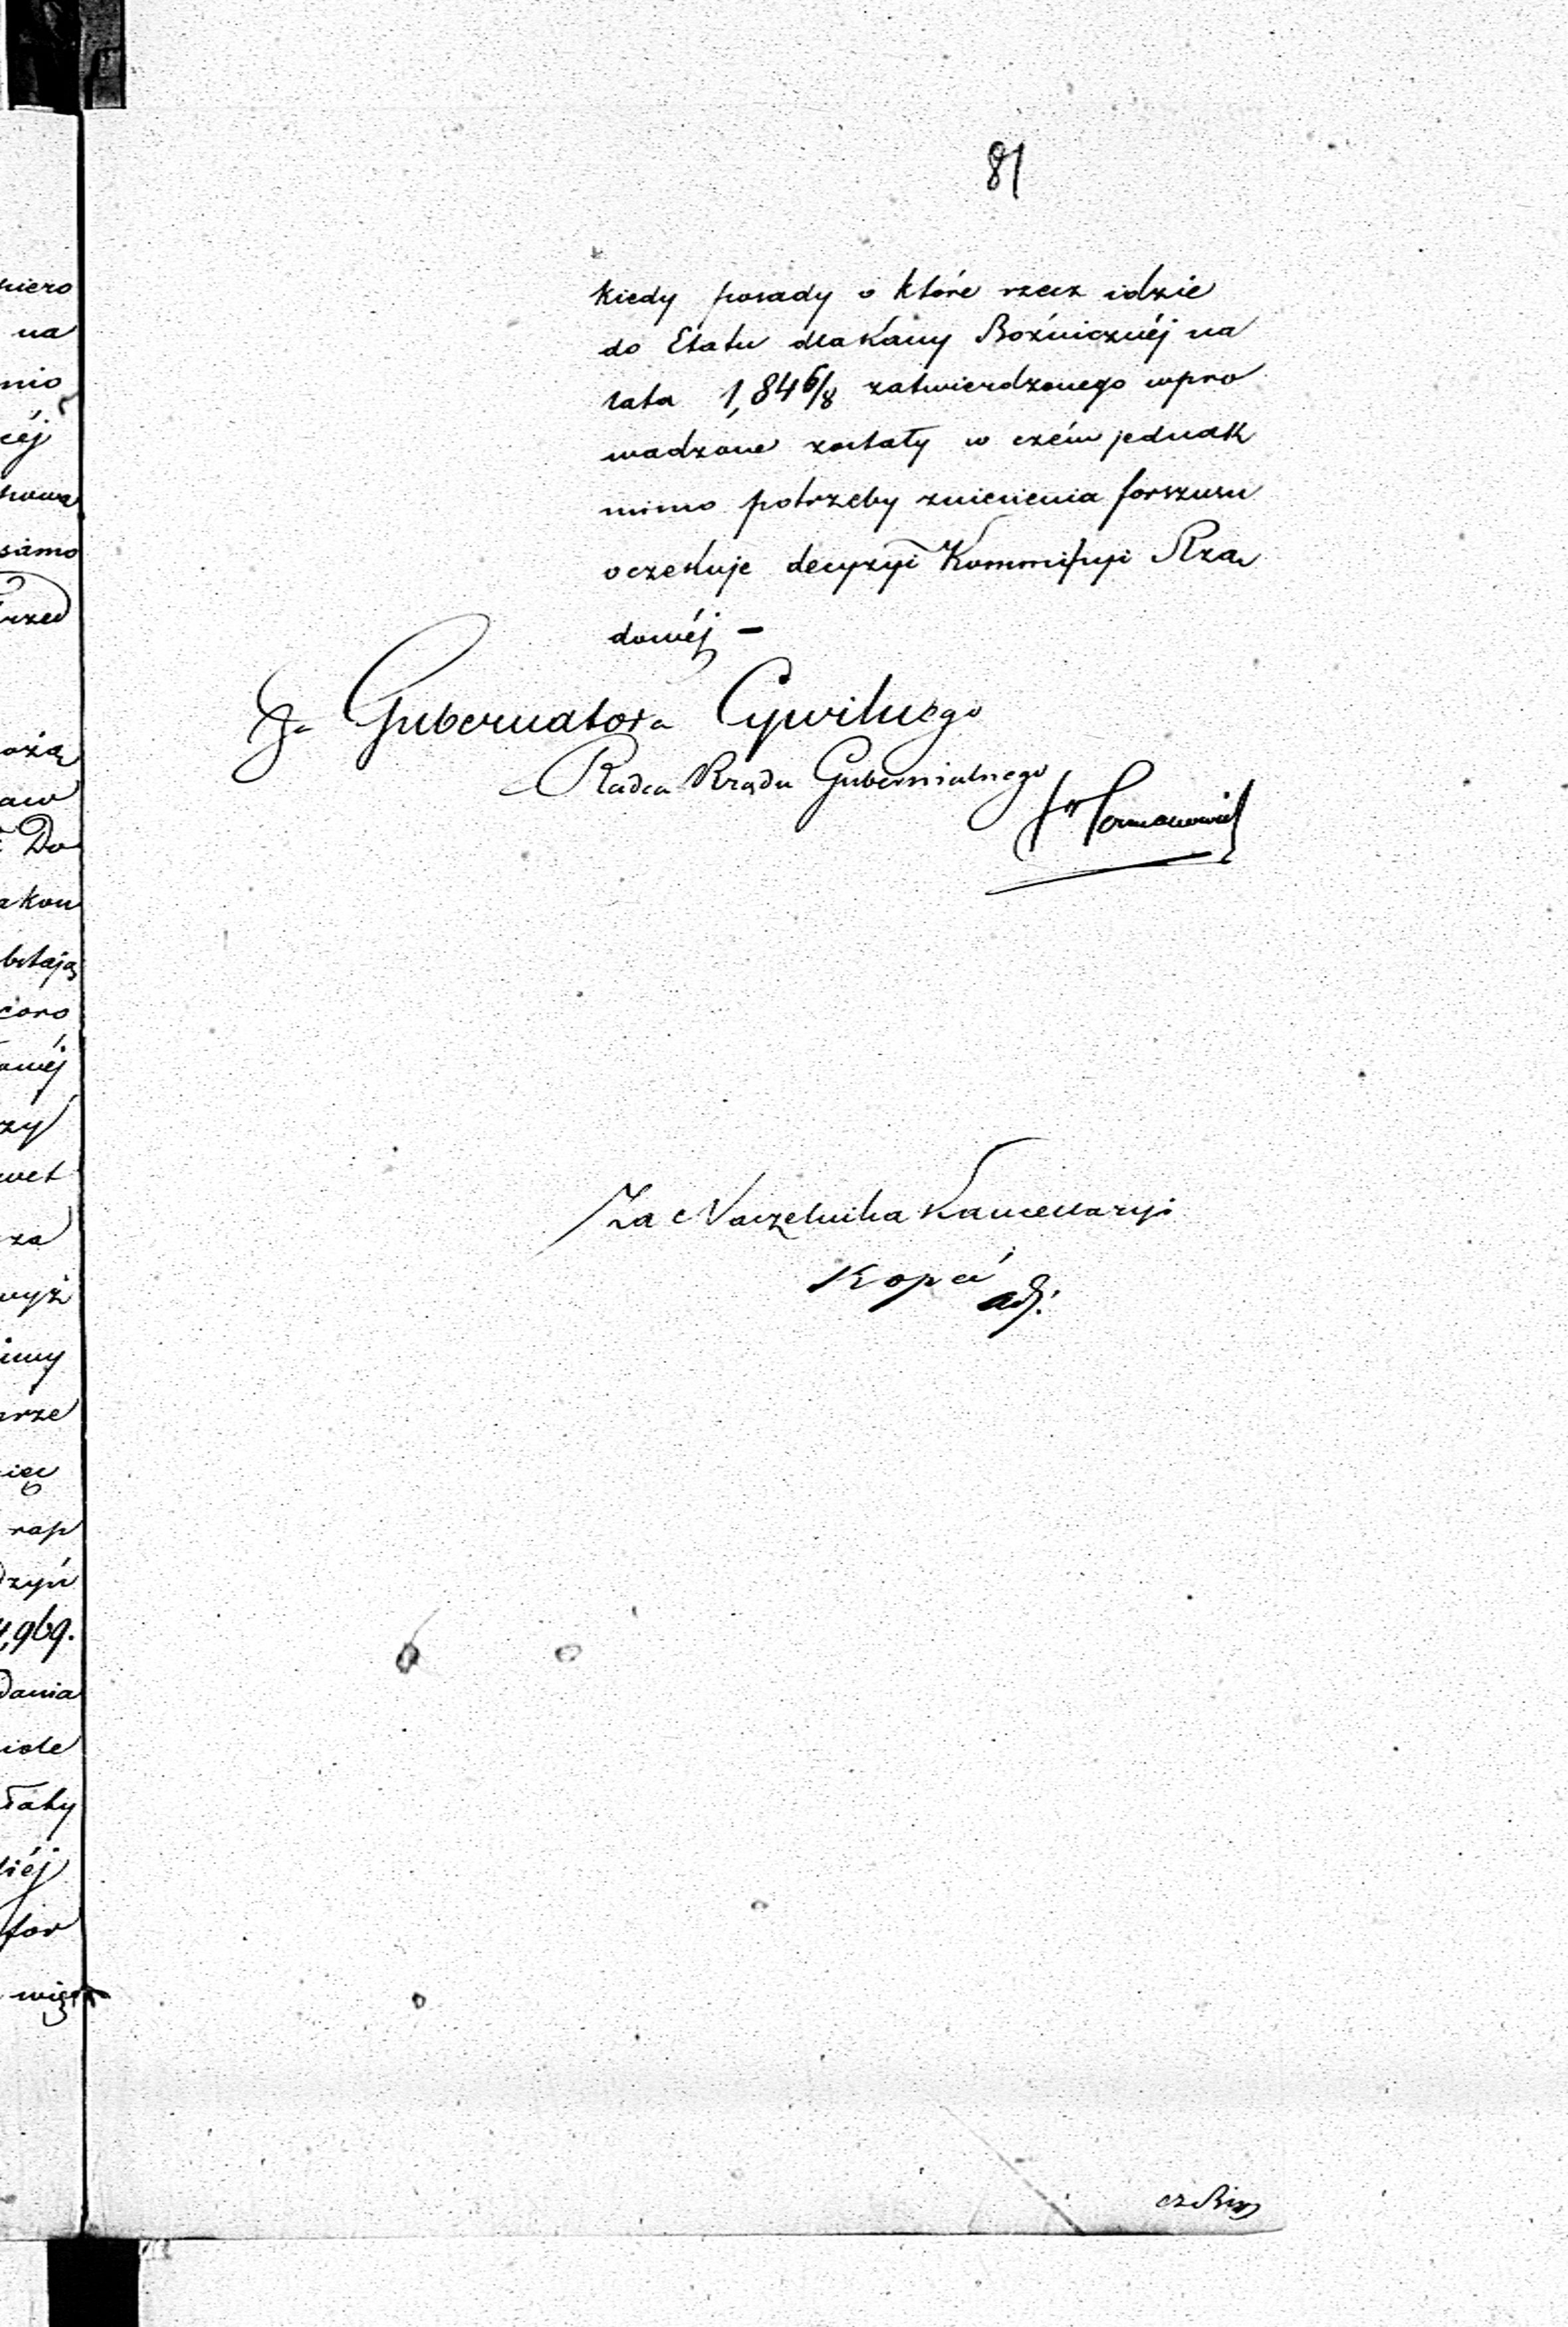 81
kiedy posady o które rzecz idzie
do Etatu dla Kassy Bożnicznéj na
lata 1,846/8 zatwierdzonego wpro
wadzone zostały w czém jednak
mimo potrzeby zniesienia forszusu
oczekuje decyzyi Kommissyi Rzą
dowéj –
Za Gubernatora Cywilnego
Radca Rządu Gubernialnego
Za Naczelnika Kancellaryi
Kopeć
adj:
piero
na
mio
céj
samo
rzed
Do
akon
coro
zy
wet
za
wyż
imy
prze
ięc
rap
dzyń
4,969.
dania
tor